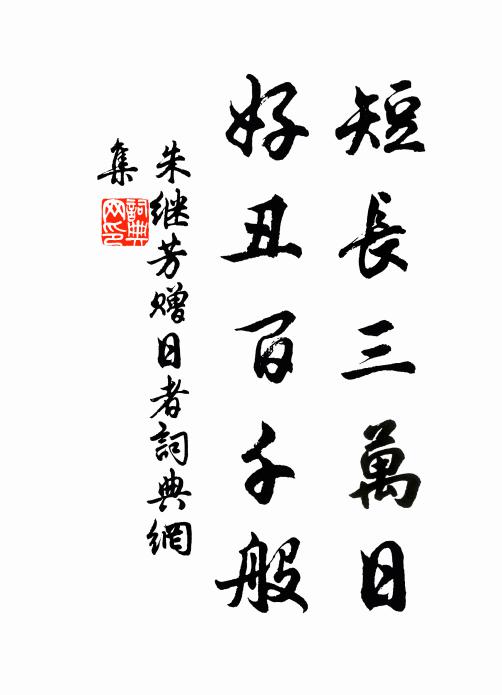 短長三萬日
好丑百千般
朱继芳赠日者詞典網
集
詞典
网印